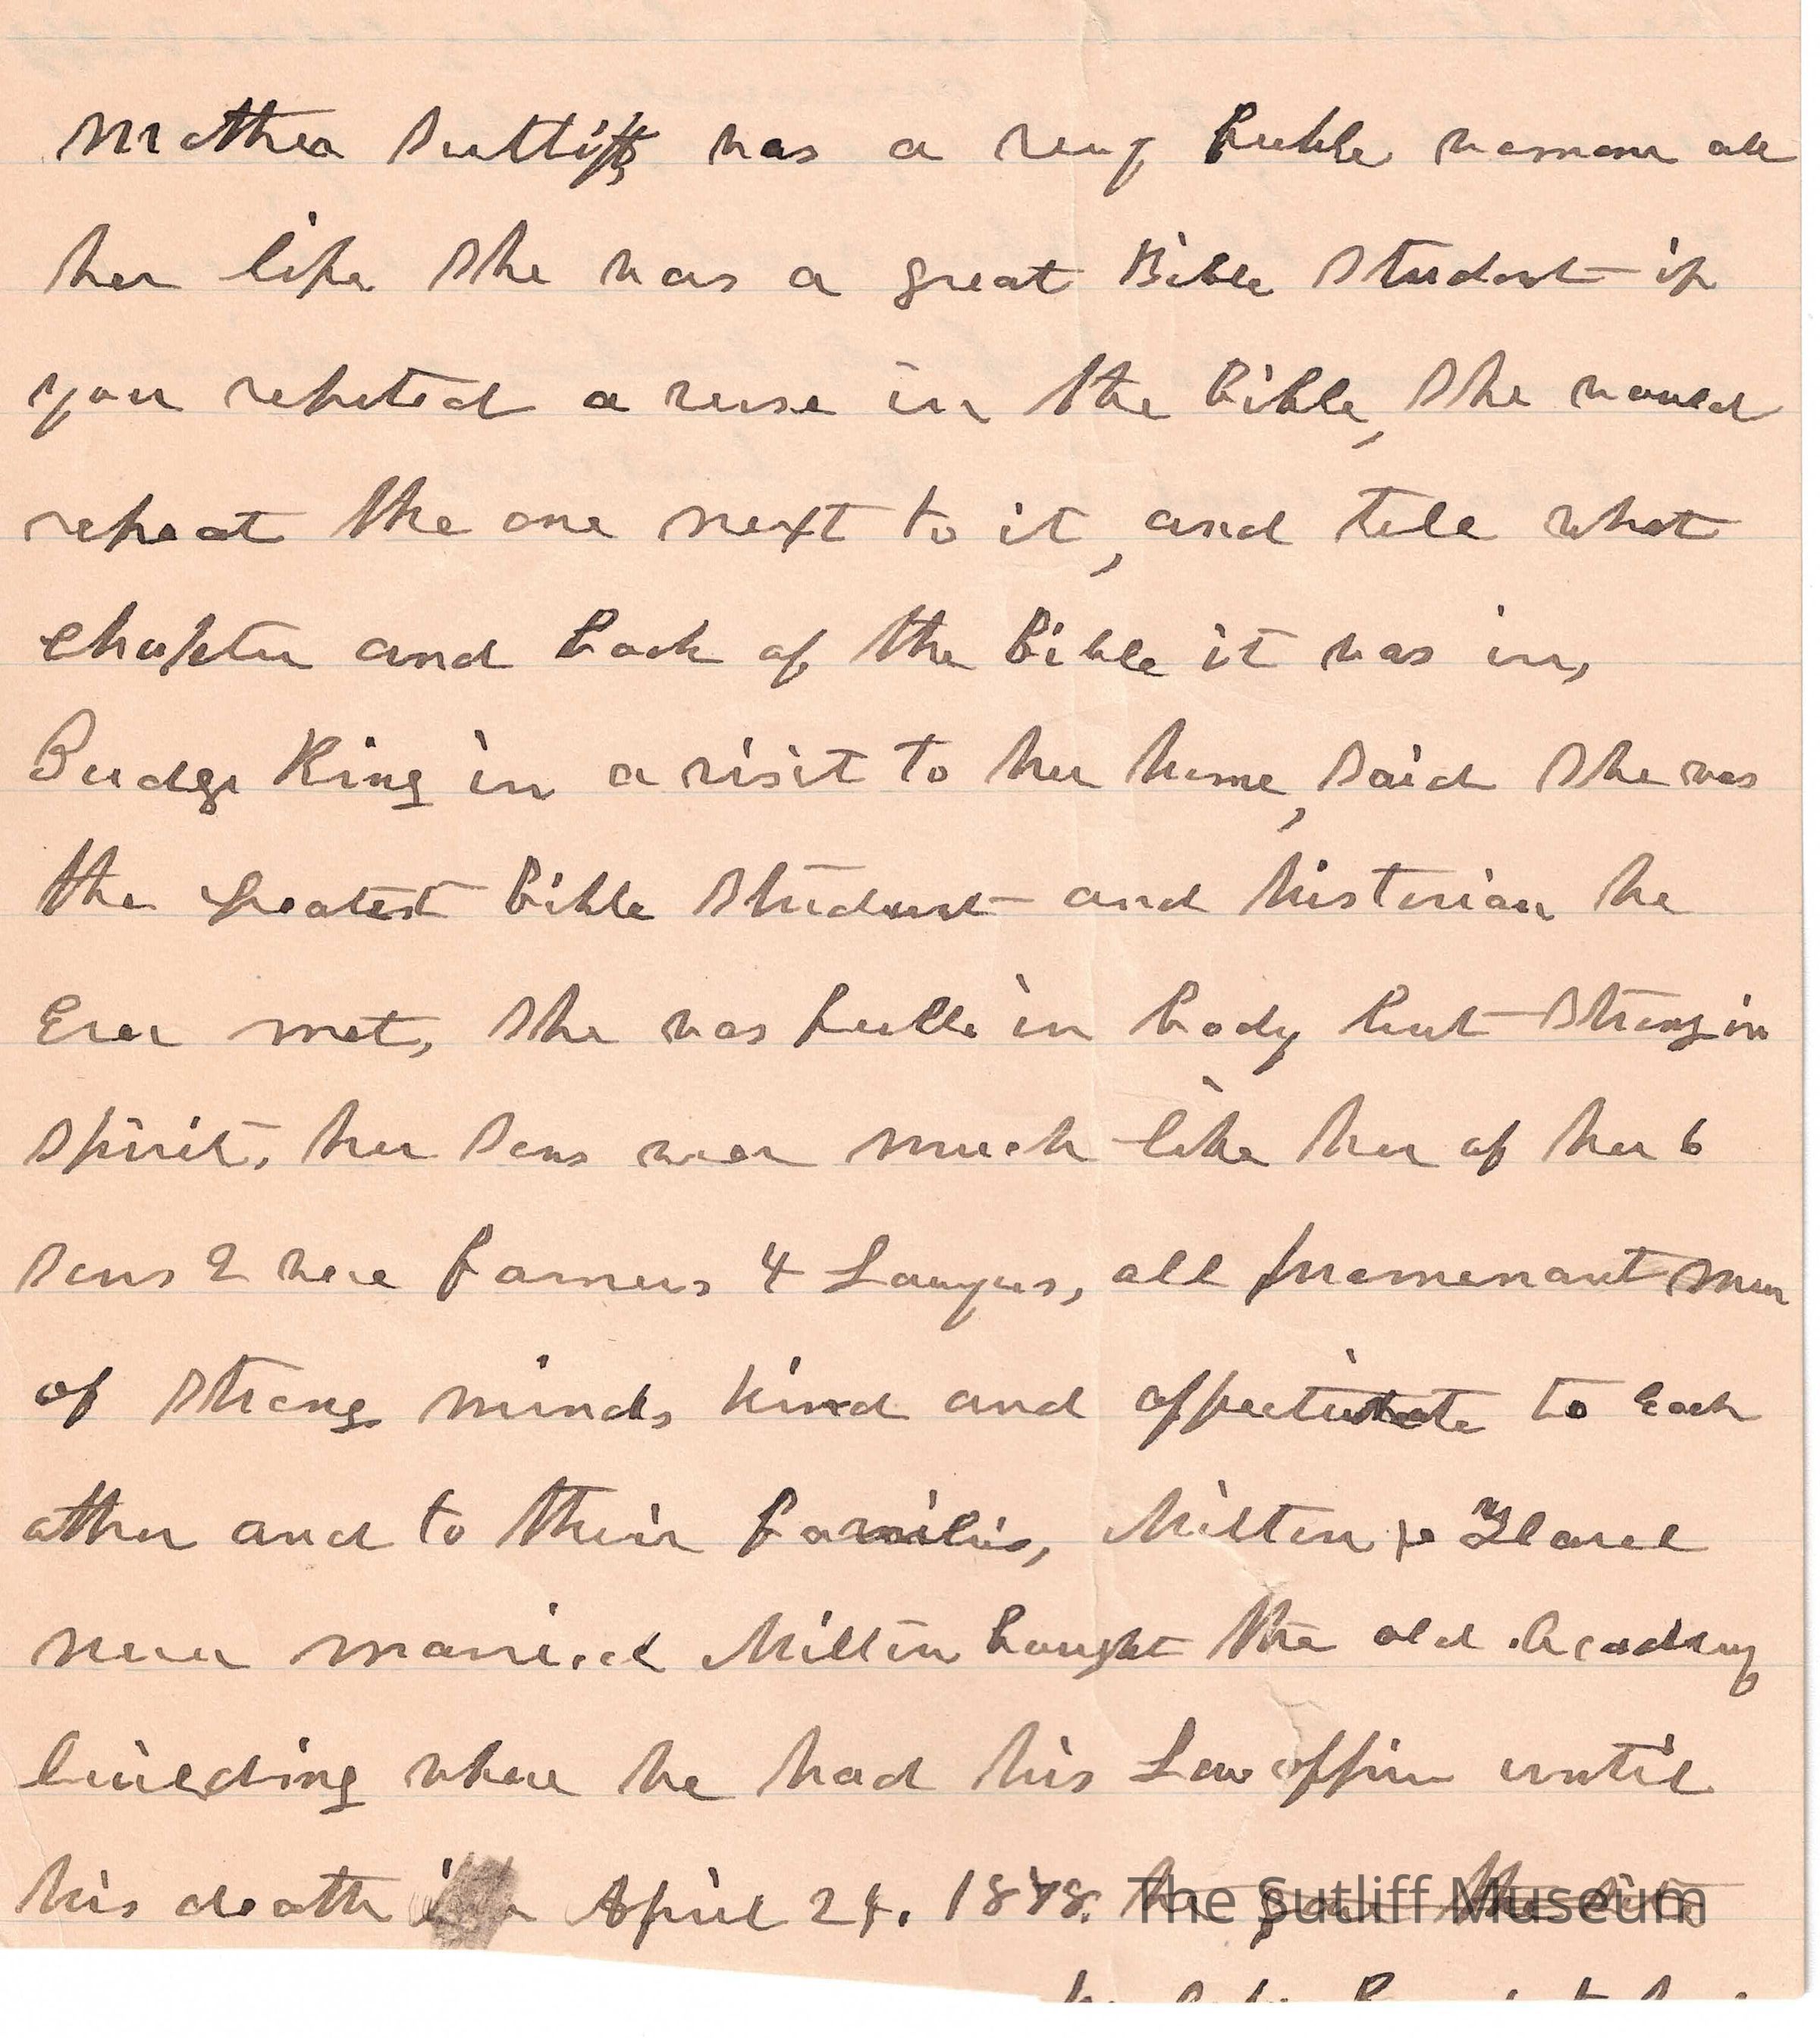 Mother Sutliff, was a very feeble woman all
her life she was a great Bible student if
you repeted a verse in the Bible, she would
repeat the one next to it, and tell what
chapter and book of the Bible it was in,
Judge King in a visit to her home, said she was
the greatest Bible student and historian he
Ever met, she was feeble in body but strong in
spirit, her sons wer much like her of her 6
sons 2 were farmers 4 Lawyers, all promenant men
of strong minds kind and affectionate to Each
other and to their families, Milton &
never married Milton bought the old Academy
building where he had his Law office until
his death in April 24. 1878. he gave the
The Sutliff Museum